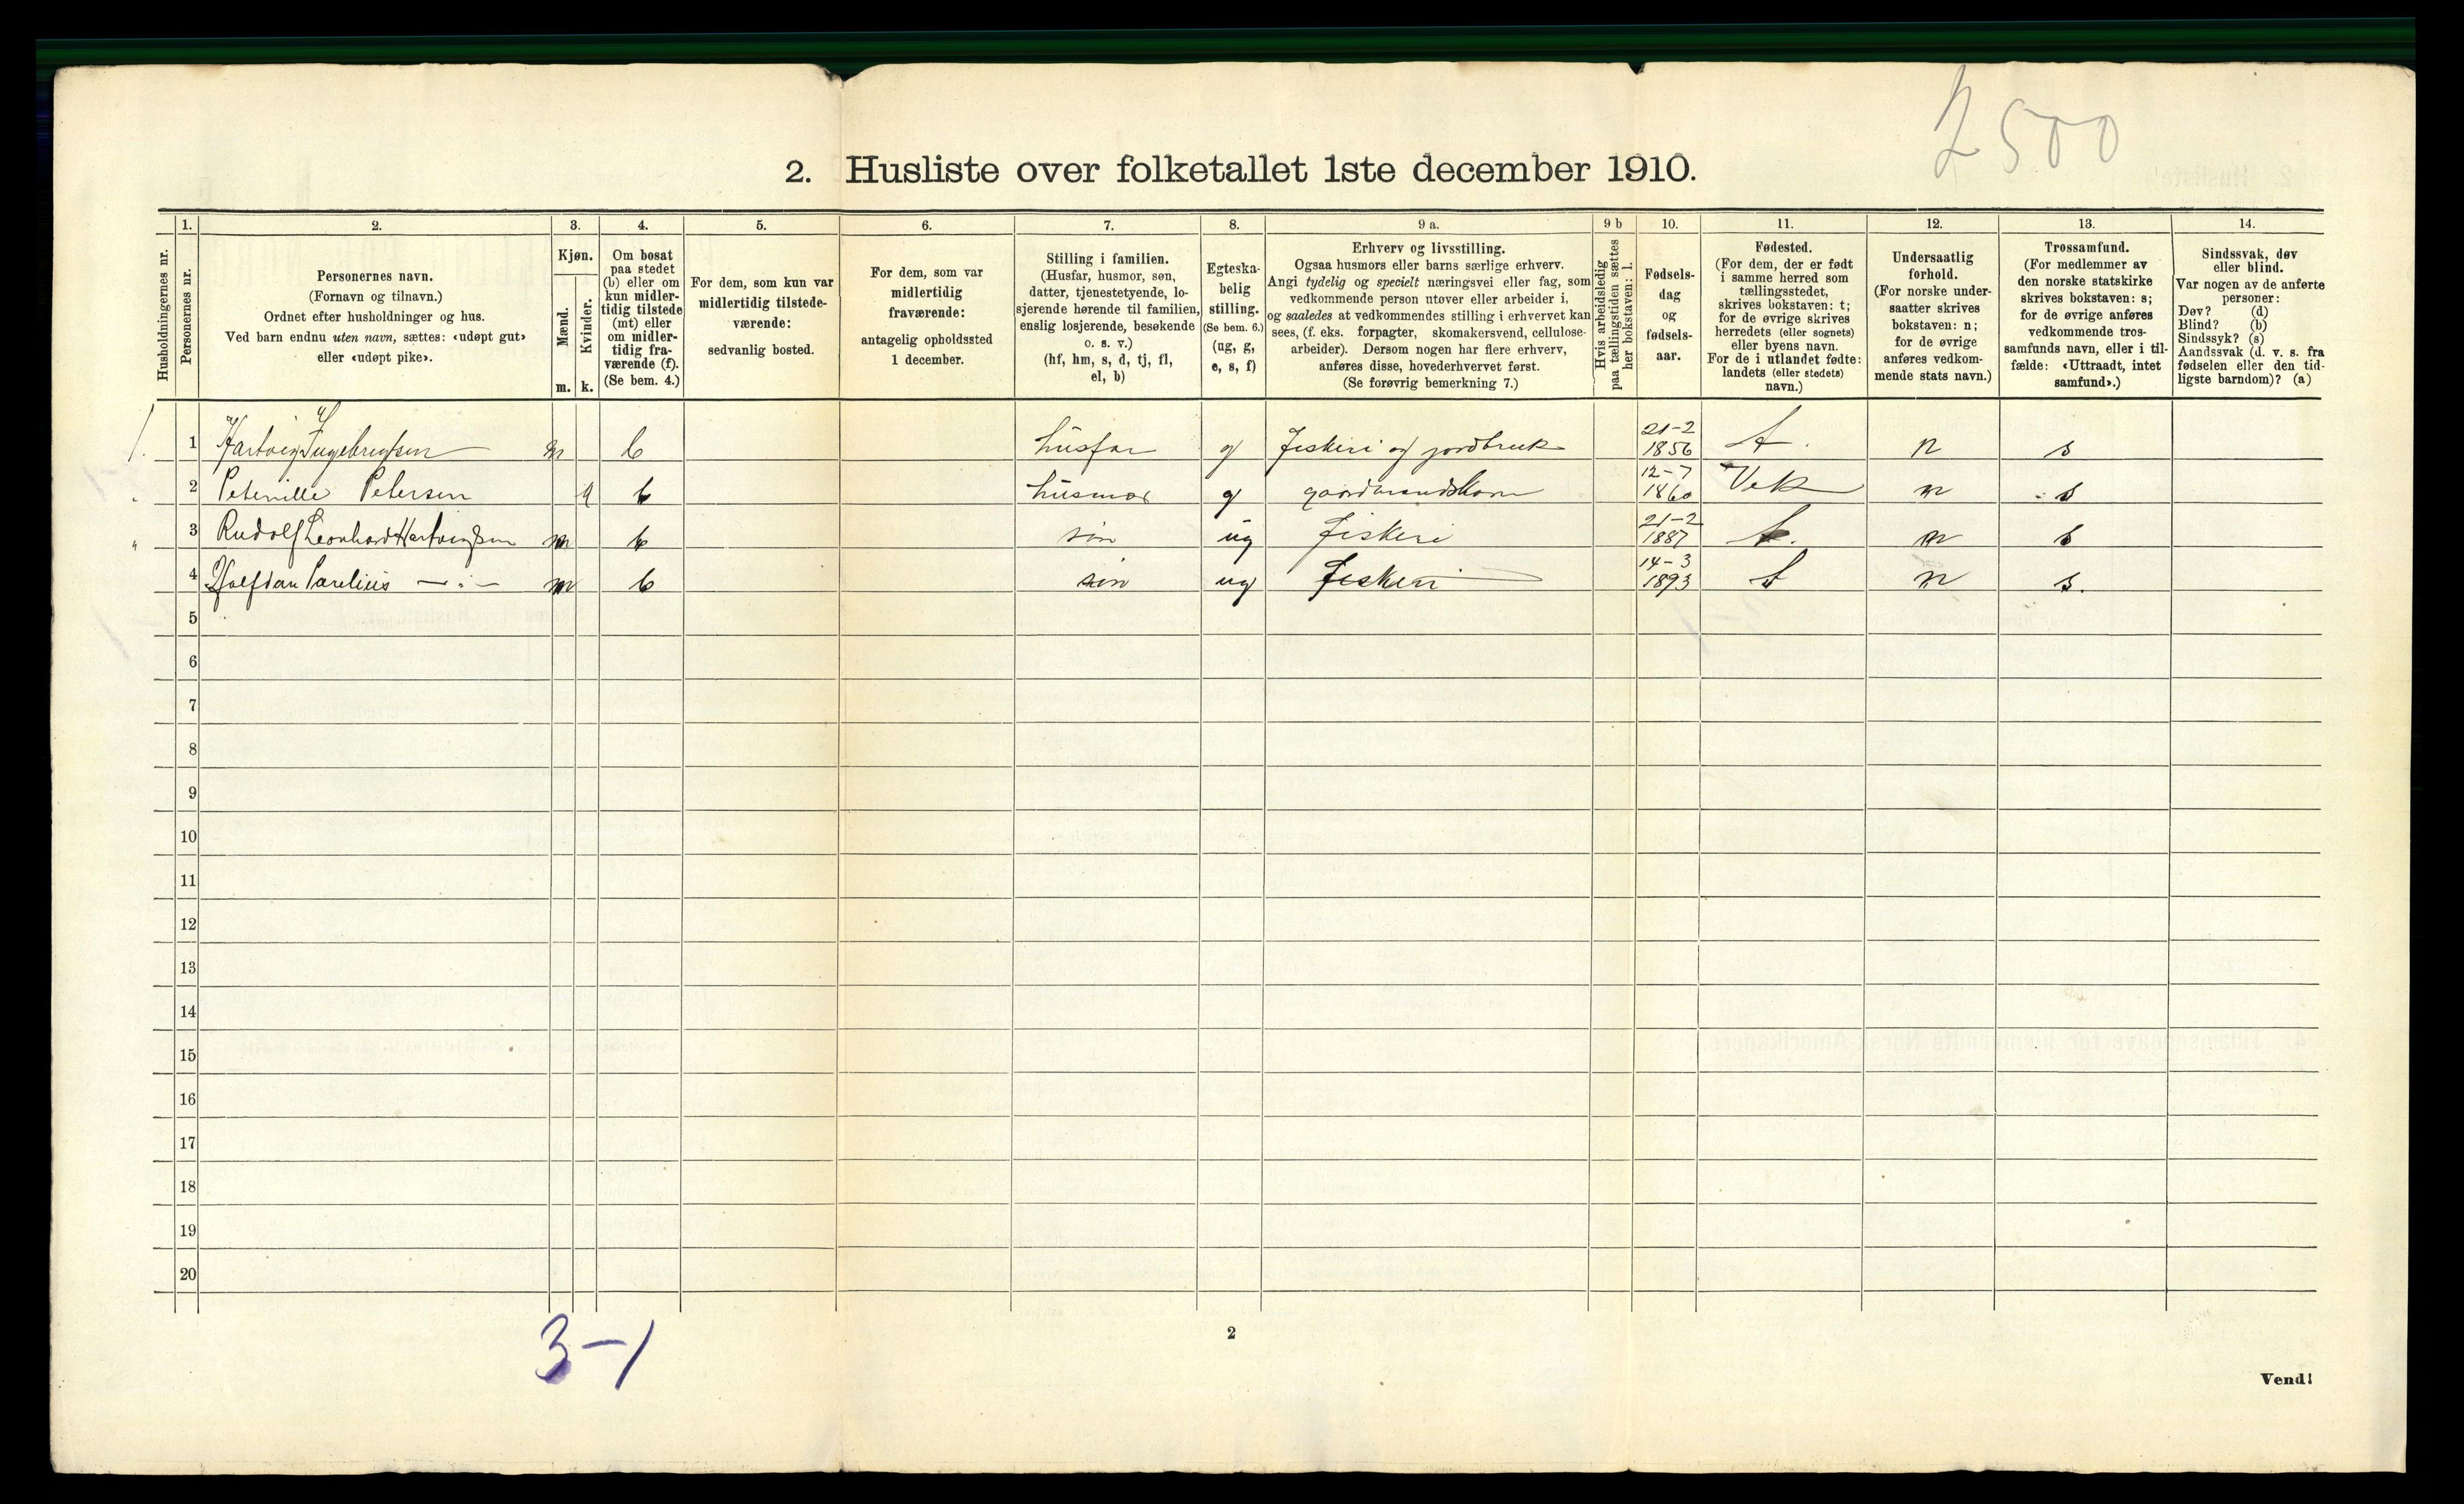 2500
2. Husliste over folketallet 1ste december 1910.
Husholdningernes nr.
1.
Personernes nr.
2.
Personernes navn.
(Fornavn og tilnavn.)
Ordnet efter husholdninger og hus.
Ved barn endnu uten navn, sættes: «udøpt gut»
eller «udøpt pike».
3.
Kjøn.
Mænd.
Kvinder.
m. k.
4.
Om bosat
paa stedet
(b) eller om
kun midler-
tidig tilstede
(mt) eller
om midler-
tidig fra-
værende (f).
(Se bem. 4.)
5.
For dem, som kun var
midlertidig tilstede-
værende:
sedvanlig bosted.
6.
For dem, som var
midlertidig
fraværende:
antagelig opholdssted
1 december.
7.
Stilling i familien.
(Husfar, husmor, søn,
datter, tjenestetyende, lo-
sjerende hørende til familien,
enslig losjerende, besøkende
o. s. v.)
(hf, hm, s, d, tj, fl,
el, b)
8.
Egteska-
belig
stilling.
(Se bem. 6.)
(ug, g,
e, s, f)
9 a.
Erhverv og livsstilling.
Ogsaa husmors eller barns særlige erhverv.
Angi tydelig og specielt næringsvei eller fag, som
vedkommende person utøver eller arbeider i,
og saaledes at vedkommendes stilling i erhvervet kan
sees, (f. eks. forpagter, skomakersvend, cellulose-
arbeider). Dersom nogen har flere erhverv,
anføres disse, hovederhvervet først.
(Se forøvrig bemerkning 7.)
9 b
Hvis arbeidsledig
paa tællingstiden sættes
her bokstaven: l.
10.
Fødsels-
dag
og
fødsels-
aar.
11.
Fødested.
(For dem, der er født
i samme herred som
tællingsstedet,
skrives bokstaven: t;
for de øvrige skrives
herredets (eller sognets)
eller byens navn.
For de i utlandet fødte:
landets (eller stedets)
navn.)
12.
Undersaatlig
forhold.
(For norske under-
saatter skrives
bokstaven: n;
for de øvrige
anføres vedkom-
mende stats navn.)
13.
Trossamfund.
(For medlemmer av
den norske statskirke
skrives bokstaven: s;
for de øvrige anføres
vedkommende tros-
samfunds navn, eller i til-
fælde: «Uttraadt, intet
samfund».)
14.
Sindssvak, døv
eller blind.
Var nogen av de anførte
personer:
Døv? (d)
Blind? (b)
Sindssyk? (s)
Aandssvak (d. v. s. fra
fødselen eller den tid-
ligste barndom)? (a)
1 Hartvig Ingebrigtsen m b husfar g fiskeri og jordbruk 21-2 1856 t. n s
2 Petersen k b husmor g gaardmandskone 12-7 1860 Vek n s
3 Rudolf Leonhard Hartvigsen m b søn ug fiskeri 21-2 1887 t. n s
4 Halfdan Parelius —"— m b søn ug fiskeri 14-3 1893 t n s.
5
6
7
8
9
10
11
12
13
14
15
16
17
18
19
20
3-1
2
Vend!